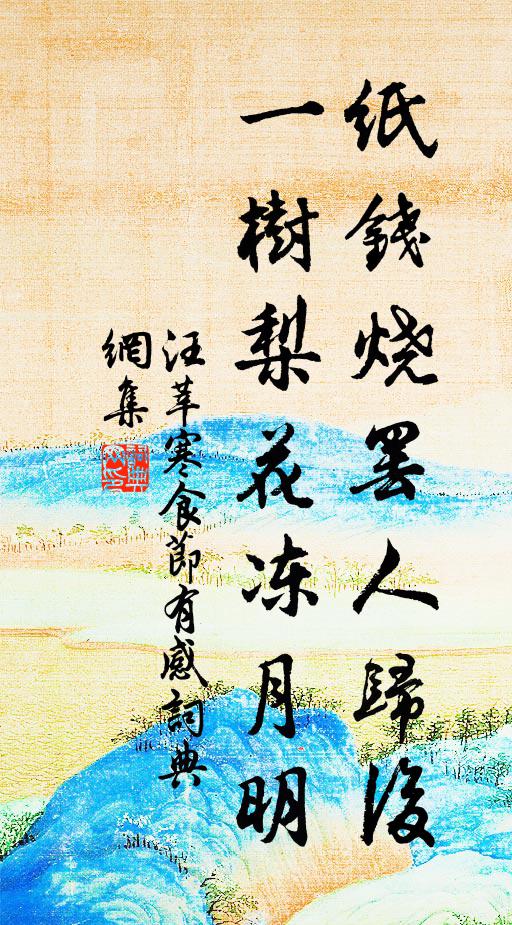 紙錢烧罢人歸後
一樹梨花冻月明
汪莘寒食節有感詞典
網集